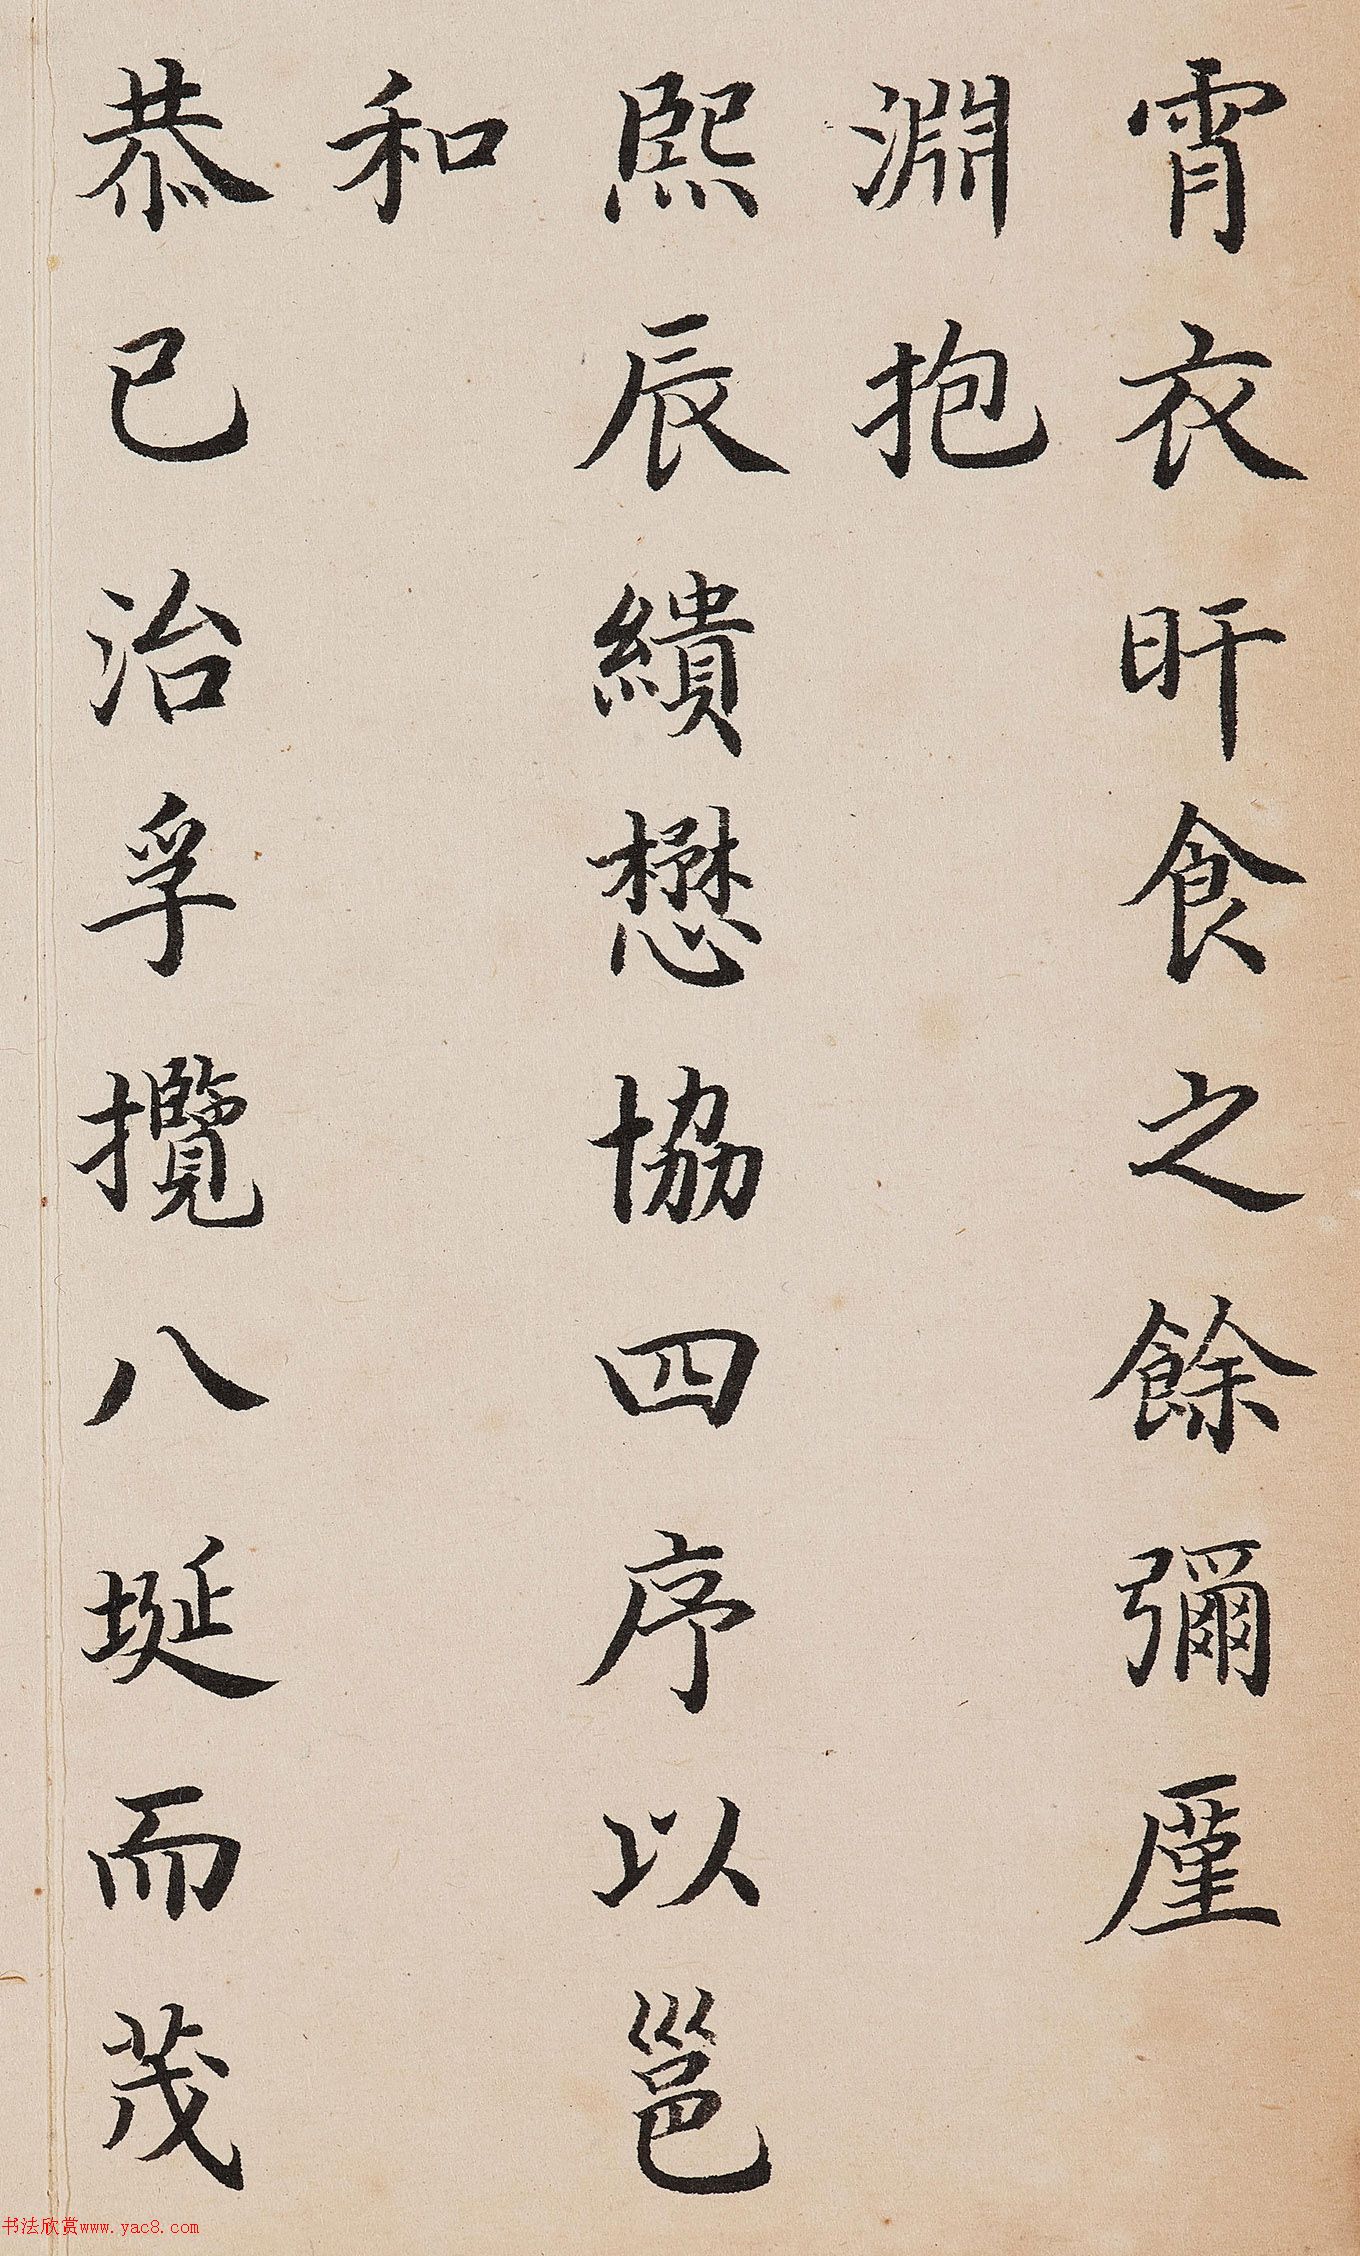 宵衣旰食之餘彌廑
淵抱
熙辰績懋協四序以邕
和
恭己治孚攬八埏而茂
书法欣赏www.yac8.com